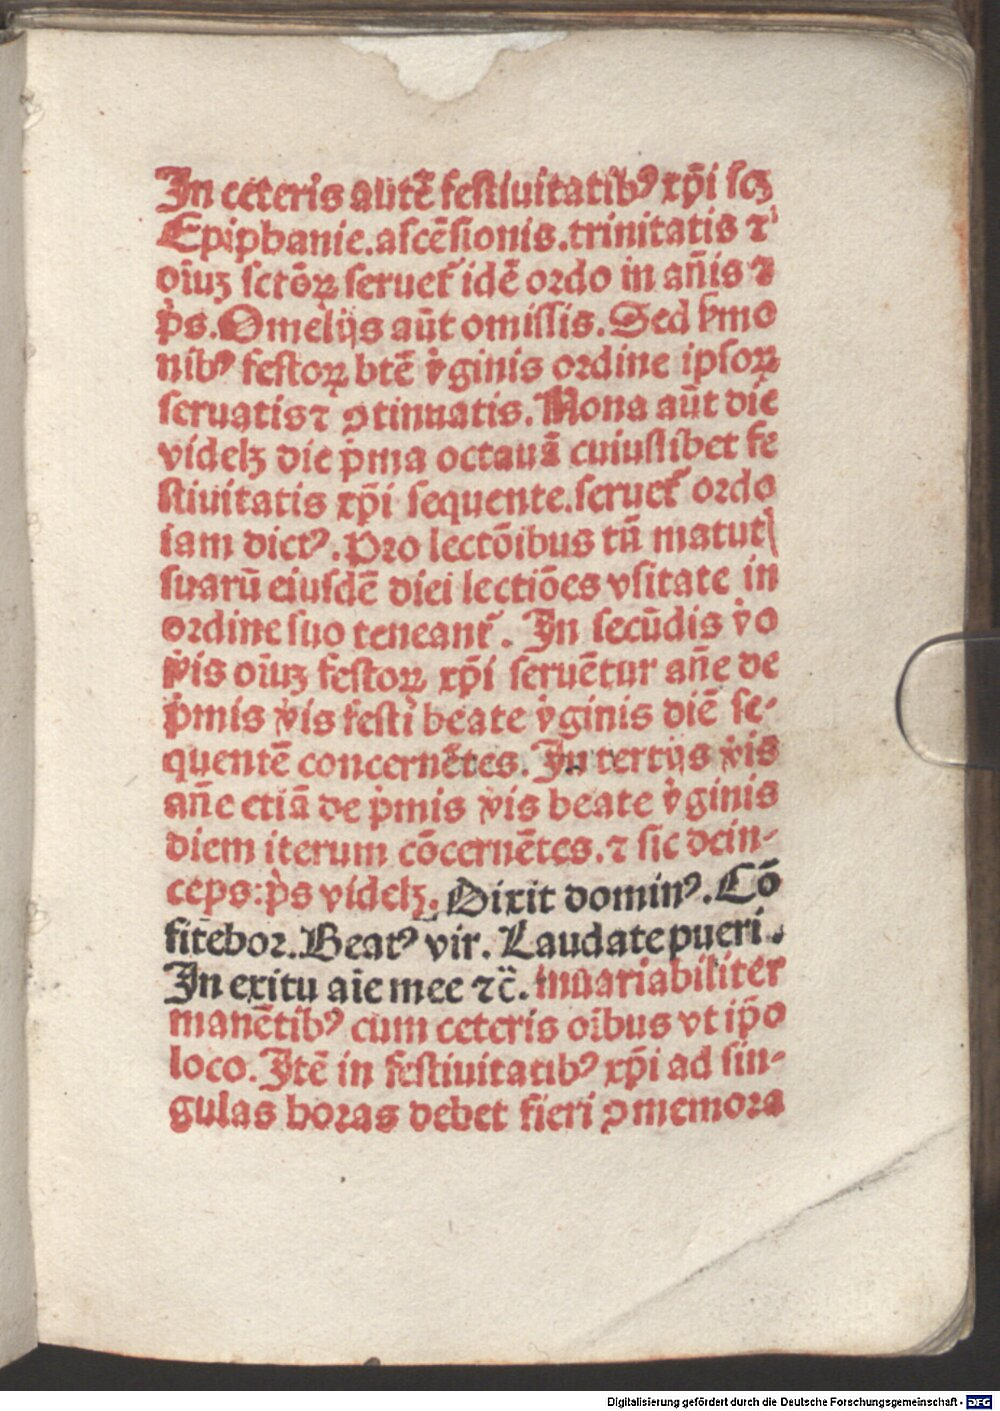 In ceteris autē festiuitatibꝰ xp̄i scꝫ
Epiphanie.ascēsionis.trinitatis ⁊
oīuꝫ sctōꝝ seruet᷑ idē ordo in an̄is ⁊
p̄s. Omelijs aūt omissis. Sed ẜmo
nibꝰ festoꝝ btē v̓ginis ordine ipsoꝝ
seruatis ⁊ ꝯtinuatis. Nona aūt die
videlꝫ die p̓ma octauā cuiuslibet fe
stiuitatis xp̄i sequente.seruet᷑ ordo
iam dictꝰ. Pro lectōibus tn̄ matuti
suarū eiusdē diei lectiōes vsitate in
ordine suo teneant᷑. In secūdis v̓o
v̓is oīuꝫ festoꝝ xp̄i seruētur an̄e de
p̓mis v̓is festi beate v̓ginis diē se-
quentē concernētes. In tertijs v̓is
an̄e etiā de p̓mis v̓is beate v̓ginis
diem iterum cōcernētes. ⁊ sic dein-
ceps: p̄s videlꝫ. Dixit dominꝰ. Cō
fitebor. Beatꝰ vir. Laudate pueri.
In exitu aīe mee ⁊c̄. inuariabiliter
manētibꝰ cum ceteris oībus vt ip̄o
loco. Itē in festiuitatibꝰ xp̄i ad sin-
gulas horas debet fieri ꝯmemora
Digitalisierung gefördert durch die Deutsche Forschungsgemeinschaft - DFG